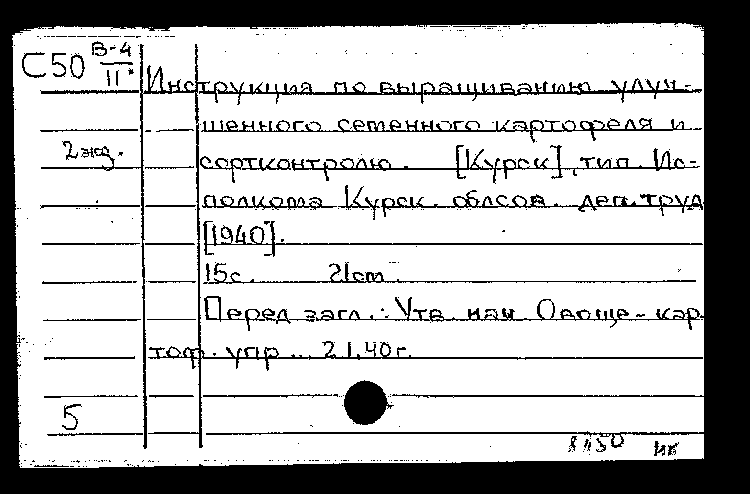 С50 В-4
II
Инструкция по выращиванию улуч-
шенного семенного картофеля и
2 экз.
сортконтролю. [Курск], тип. Ис-
полкома Курск. облсов. деп. труд
[1940].
15с. 21cm.
Перед загл.: Утв. нач Овоще-кар
тоф. упр... 2 1.40г.
5
нк